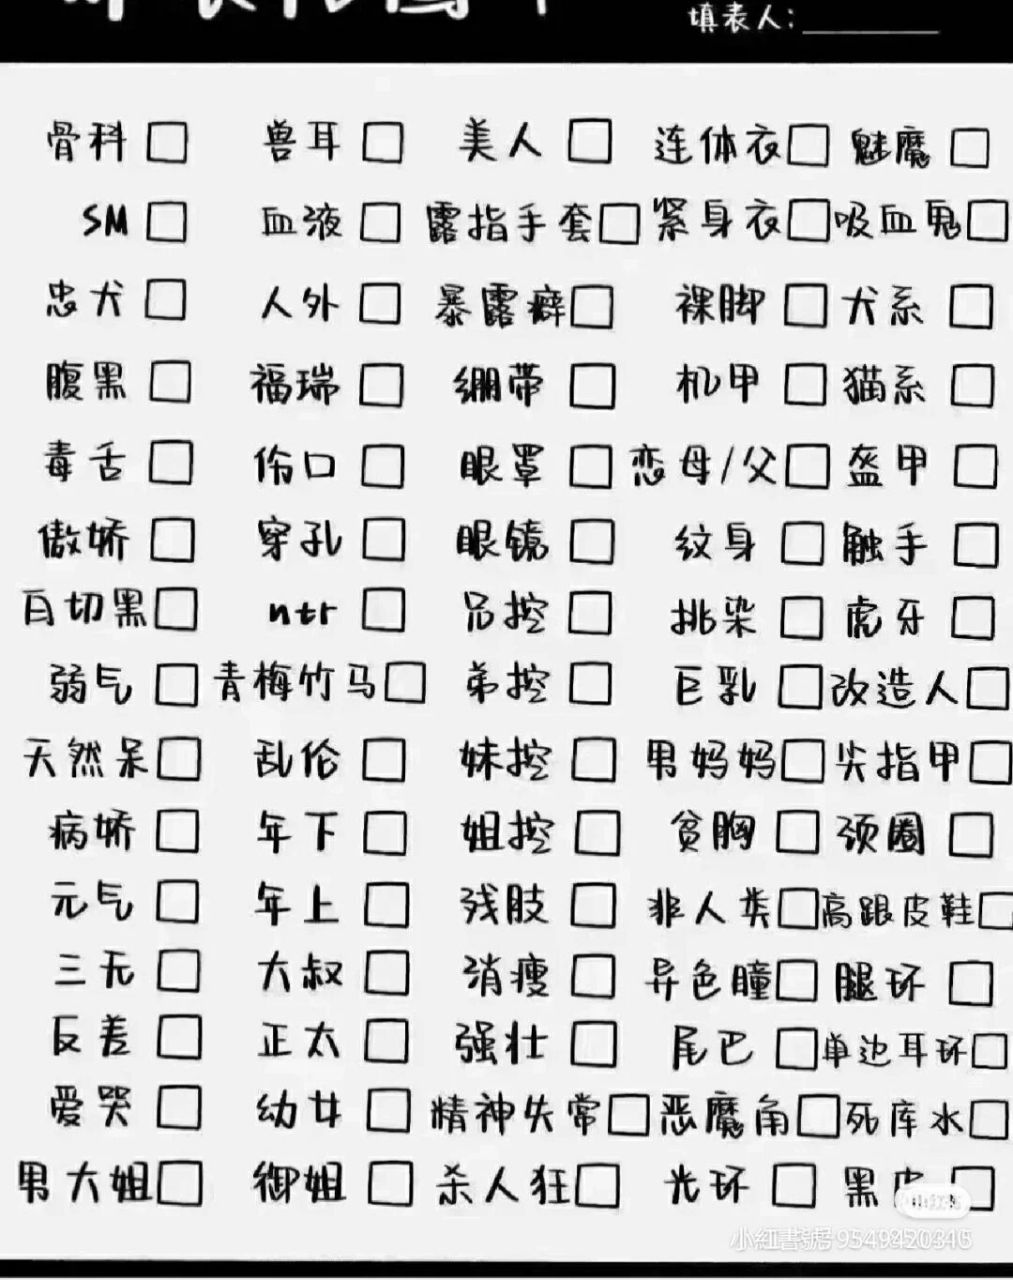 填表人:
骨科 兽耳 美人 连体衣 魅魔
SM 血液 露指手套 紧身衣 吸血鬼
忠犬 人外 暴露癖 裸脚 犬系
腹黑 福瑞 绷带 机甲 猫系
毒舌 伤口 眼罩 恋母/父 盔甲
傲娇 穿孔 眼镜 纹身 触手
白切黑 ntr 兄控 挑染 虎牙
弱气 青梅竹马 弟控 巨乳 改造人
天然呆 乱伦 妹控 男妈妈 尖指甲
病娇 年下 姐控 贫胸 颈圈
元气 年上 残肢 非人类 高跟皮鞋
三无 大叔 消瘦 异色瞳 腿环
反差 正太 强壮 尾巴 单边耳环
爱哭 幼女 精神失常 恶魔角 死库水
男大姐 御姐 杀人狂 光环 黑皮
小红书
小紅書號